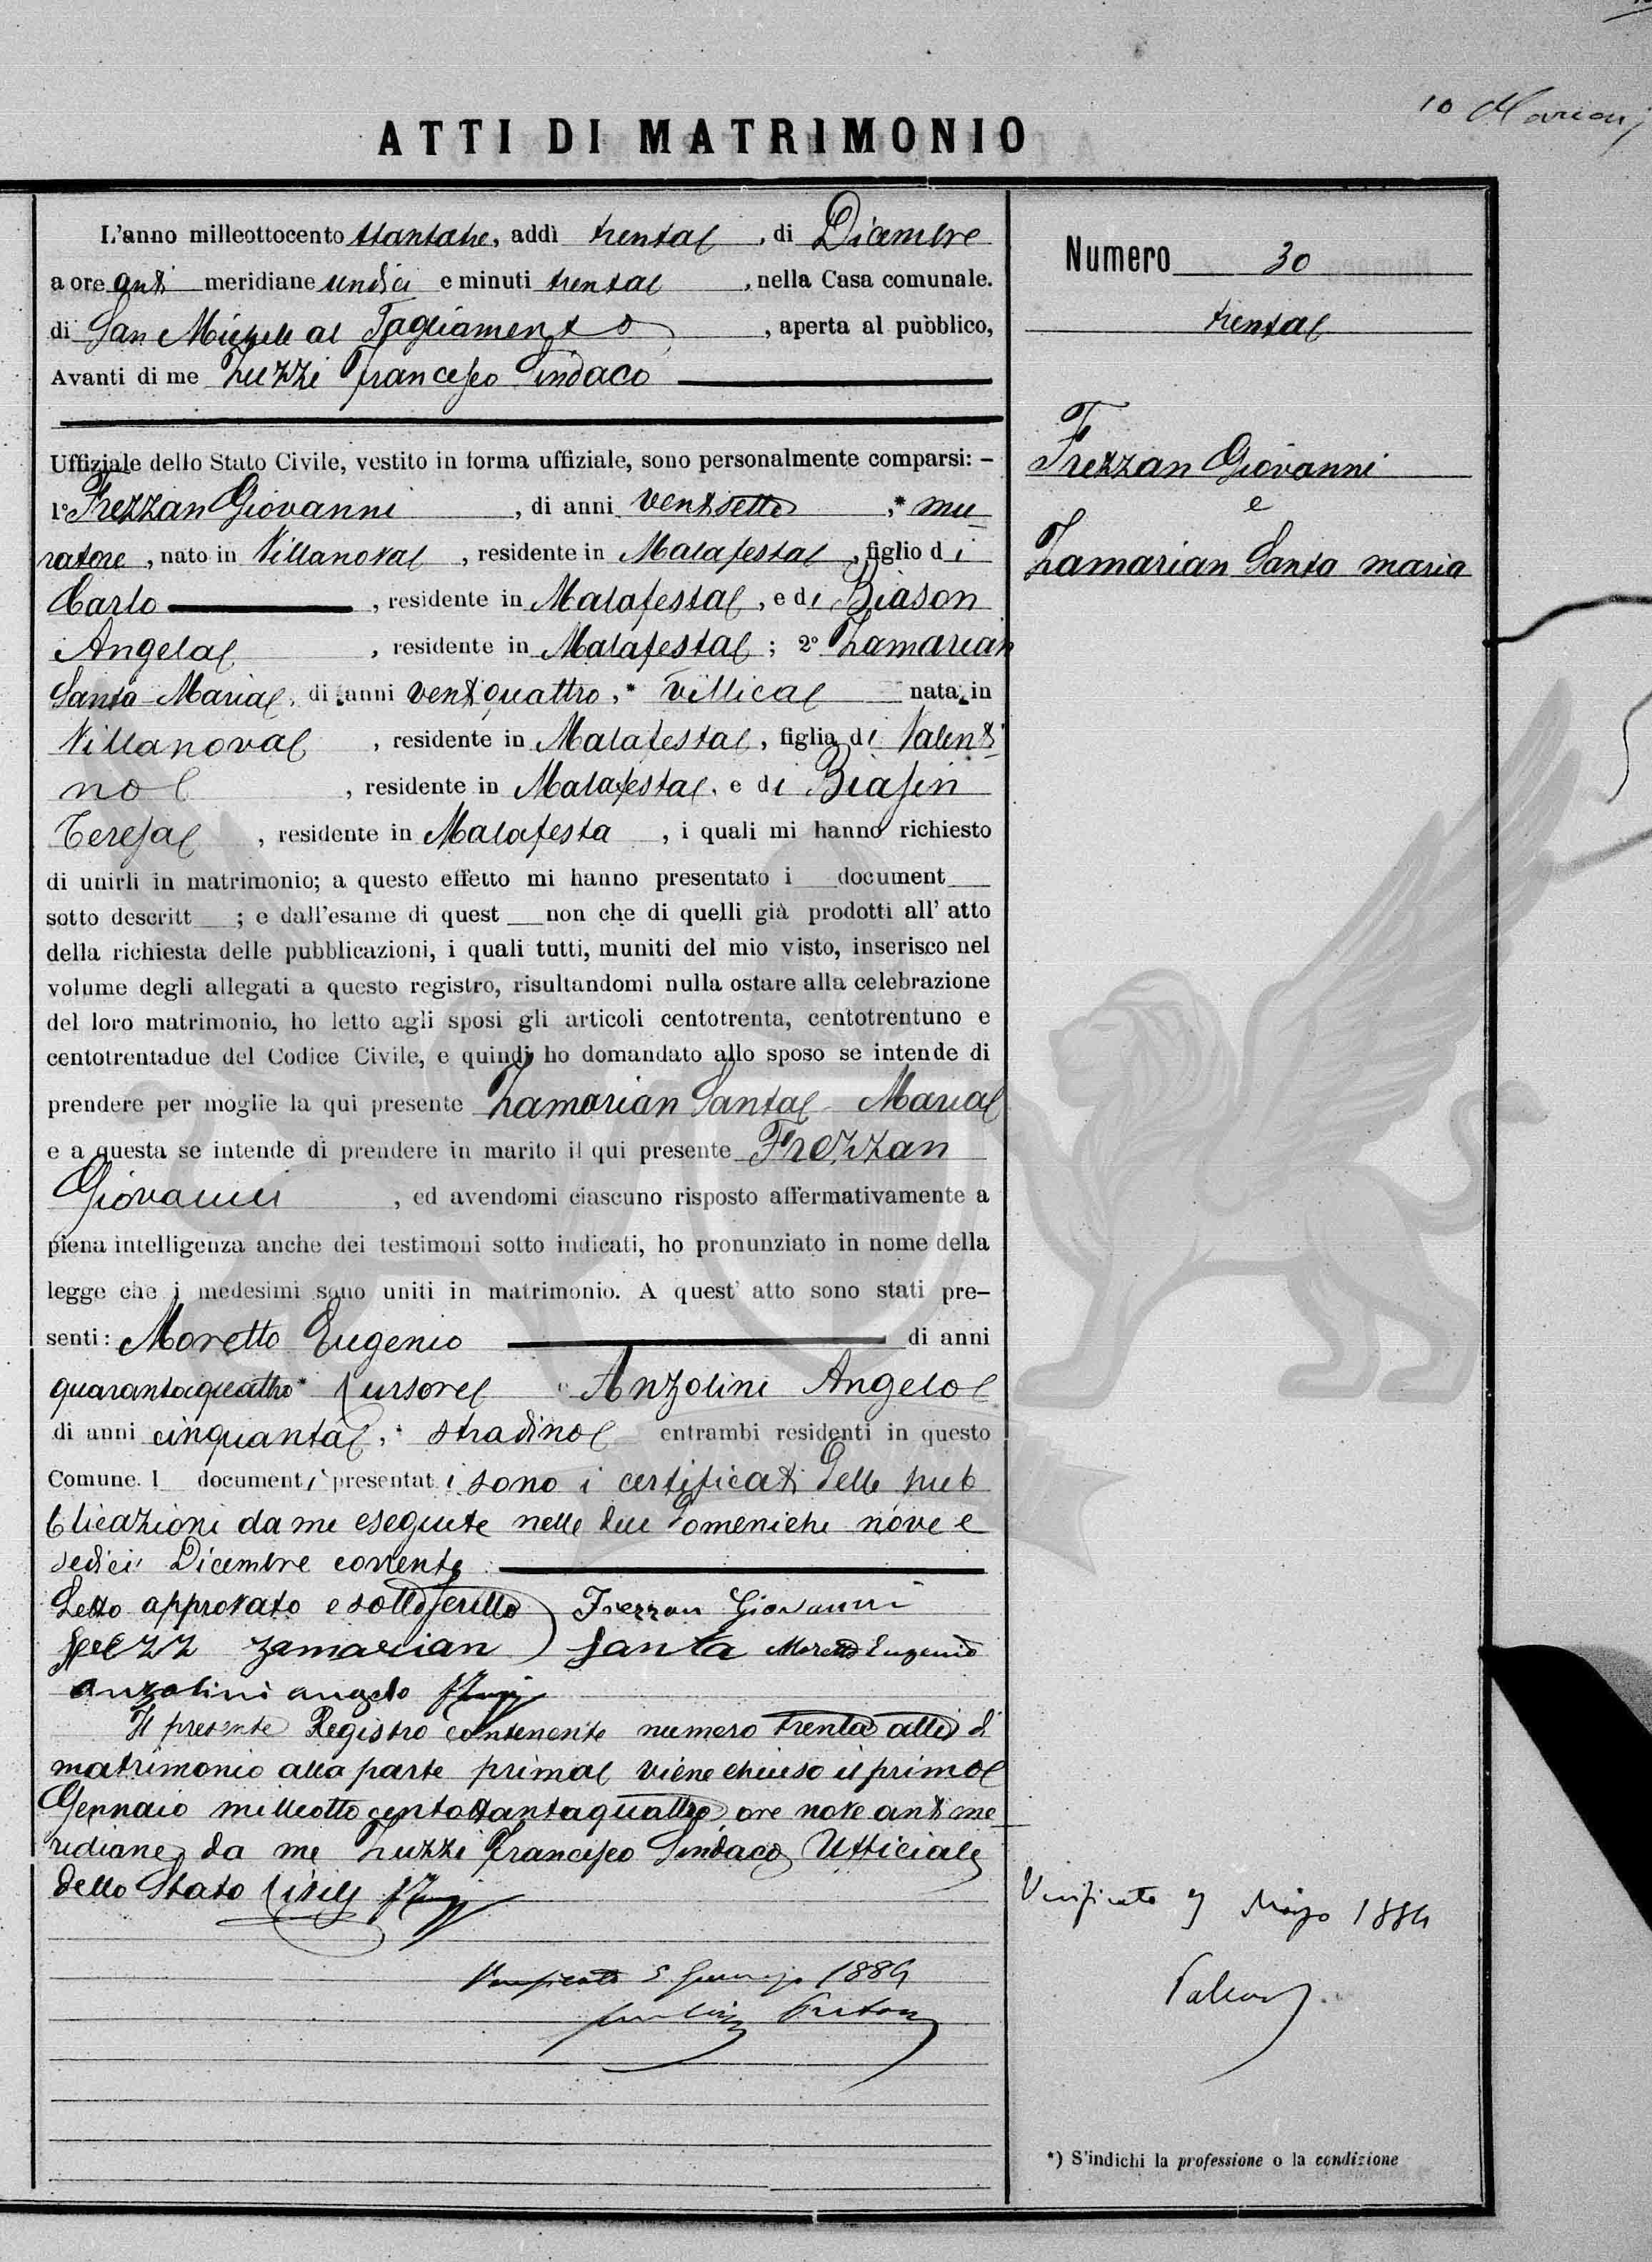 ATTI DI MATRIMONIO
L'anno milleottocento ttantatre, addì trenta, di Dicembre
a ore anti meridiane undici e minuti trenta, nella Casa comunale.
di San Michele al Tagliamento, aperta al pubblico,
Avanti di me Zuzzi Francesco Sindaco
Uffiziale dello Stato Civile, vestito in forma uffiziale, sono personalmente comparsi: –
1° Frezzan Giovanni, di anni ventisette,* mu
ratore, nato in Villanova, residente in Malafesta, figlio di
Carlo, residente in Malafesta, e di Biason
Angela, residente in Malafesta; 2° Zamarian
Santa Maria, di anni ventiquattro,* villica nata in
Villanova, residente in Malafesta, figlia di Valenti
no, residente in Malafesta, e di Biasin
Teresa, residente in Malafesta, i quali mi hanno richiesto
di unirli in matrimonio; a questo effetto mi hanno presentato i document
sotto descritt ; e dall'esame di quest non che di quelli già prodotti all' atto
della richiesta delle pubblicazioni, i quali tutti, muniti del mio visto, inserisco nel
volume degli allegati a questo registro, risultandomi nulla ostare alla celebrazione
del loro matrimonio, ho letto agli sposi gli articoli centotrenta, centotrentuno e
centotrentadue del Codice Civile, e quindi ho domandato allo sposo se intende di
prendere per moglie la qui presente Zamarian Santa Maria
e a questa se intende di prendere in marito il qui presente Frezzan
Giovanni, ed avendomi ciascuno risposto affermativamente a
piena intelligenza anche dei testimoni sotto indicati, ho pronunziato in nome della
legge che i medesimi sono uniti in matrimonio. A quest' atto sono stati pre–
senti: Moretto Eugenio di anni
quarantaquattro* Cursore e Anzolini Angelo
di anni cinquanta,* stradino entrambi residenti in questo
Comune. I documenti presentati sono i certificati delle pub
blicazioni da me eseguite nelle due Domeniche nove e
sedici Dicembre corrente
Letto approvato e sottoscritto Frezzan Giovanni
zamarian santa Moretto Eugenio
anzolini angelo
Il presente Registro contenente numero trenta atti di
matrimonio alla parte prima viene chiuso il primo
Gennaio milleottocentottantaquattro ore nove antime
ridiane da me Zuzzi Francesco Sindaco Ufficiale
dello Stato Civile
Verificato 5 1884
Numero 30
trenta
Frezzan Giovanni
e
Zamarian Santa maria
Verificato 9 1884
*) S'indichi la professione o la condizione